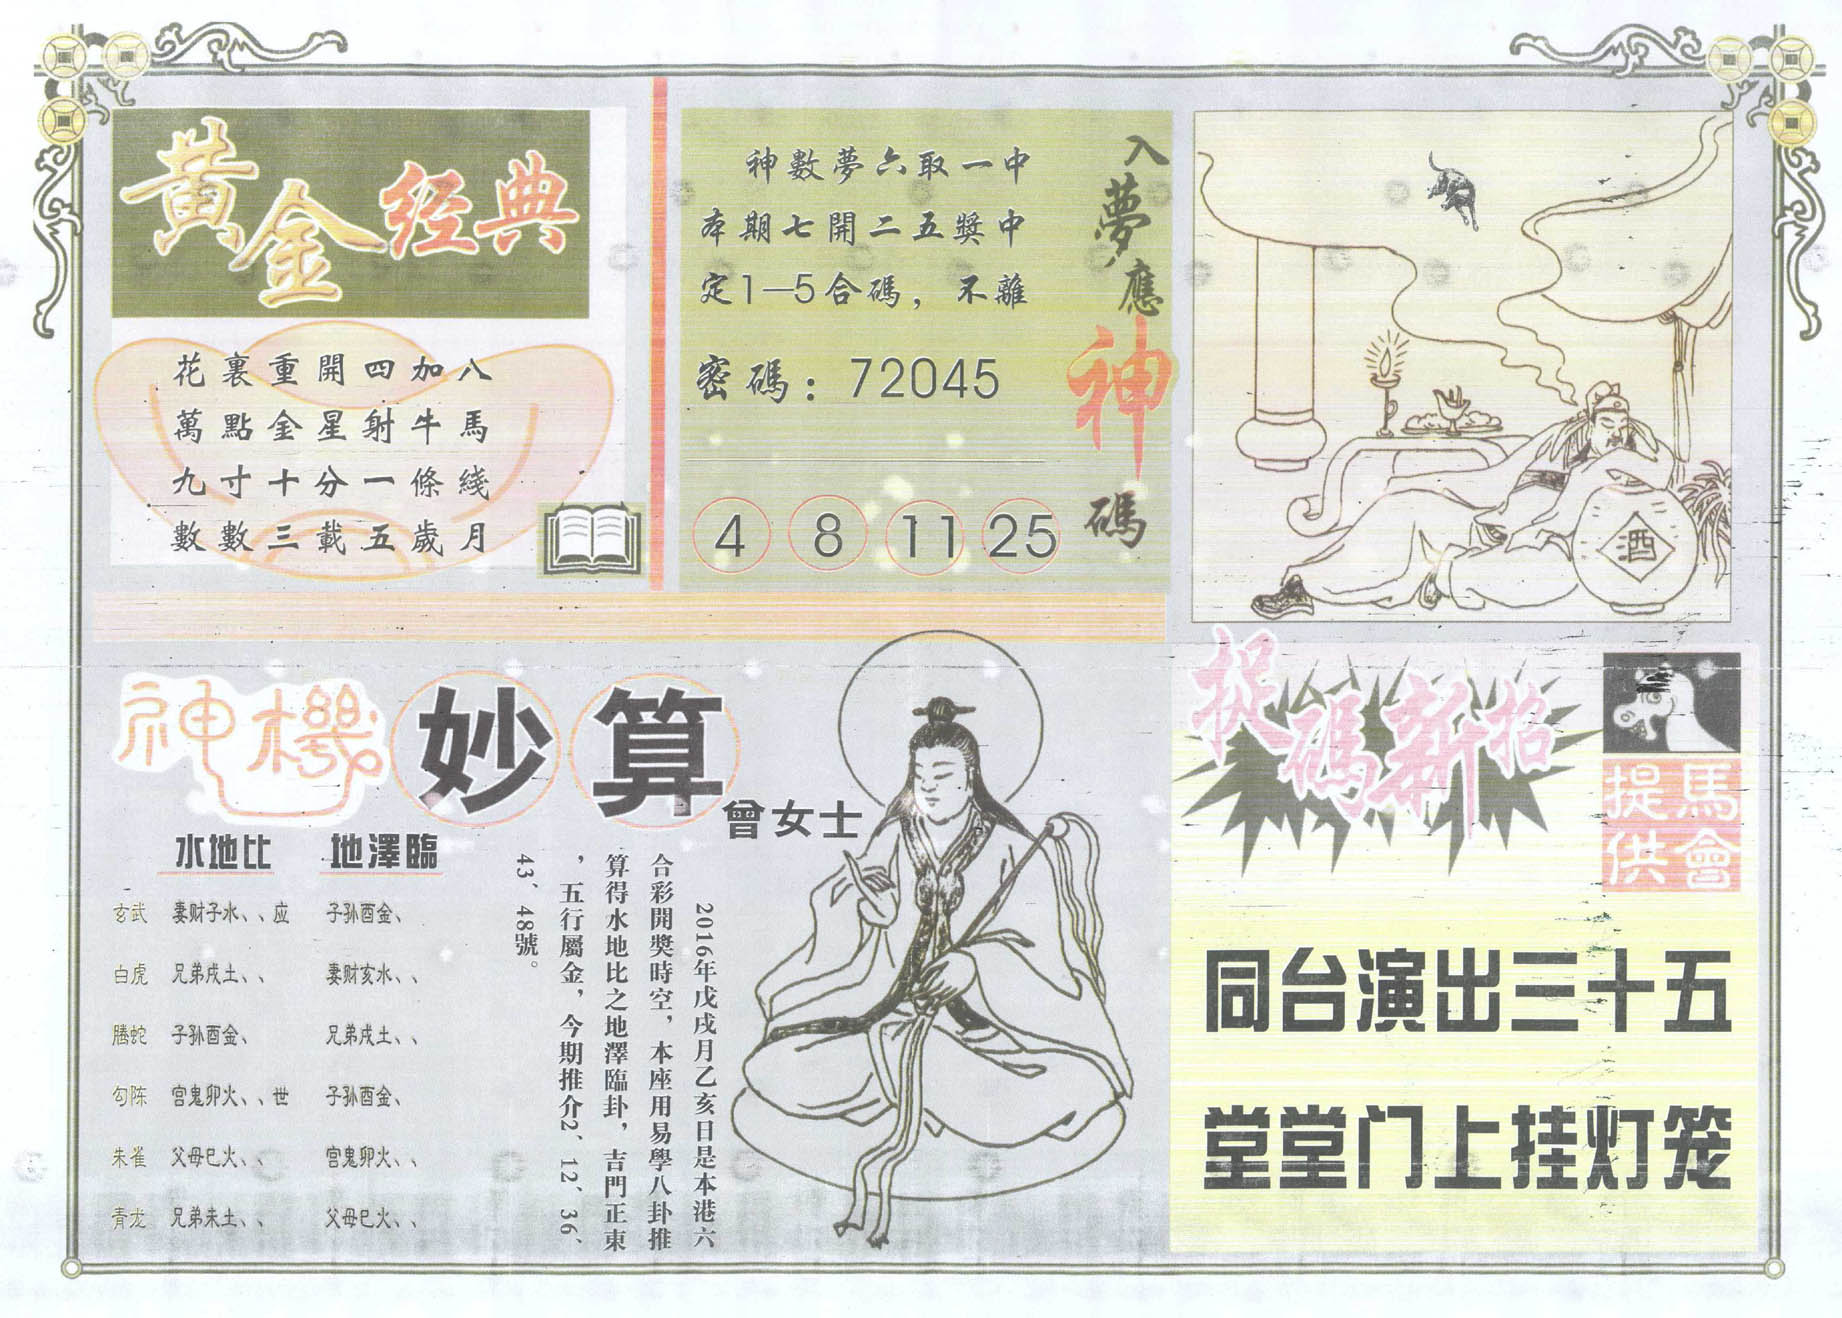 黃金经典
花裏重開四加八
萬點金星射牛馬
九寸十分一條綫
數數三載五歲月
入夢應神碼
神數夢六取一中
本期七開二五獎中
定1—5合碼，不離
密碼：72045
4 8 11 25
酒
神機妙算
曾女士
水地比 地澤臨
玄武 妻财子水、、应 子孙酉金、
白虎 兄弟戌土、、 妻财亥水、、
腾蛇 子孙酉金、 兄弟戌土、、
勾陈 宫鬼卯火、、世 子孙酉金、
朱雀 父母巳火、、 宫鬼卯火、、
青龙 兄弟未土、、 父母巳火、、
2016年戊戌月乙亥日是本港六
合彩開獎時空，本座用易學八卦推
算得水地比之地澤臨卦，吉門正東
，五行屬金，今期推介2、12、36、
43、48號。
捉碼新招
馬會
提供
同台演出三十五
堂堂门上挂灯笼